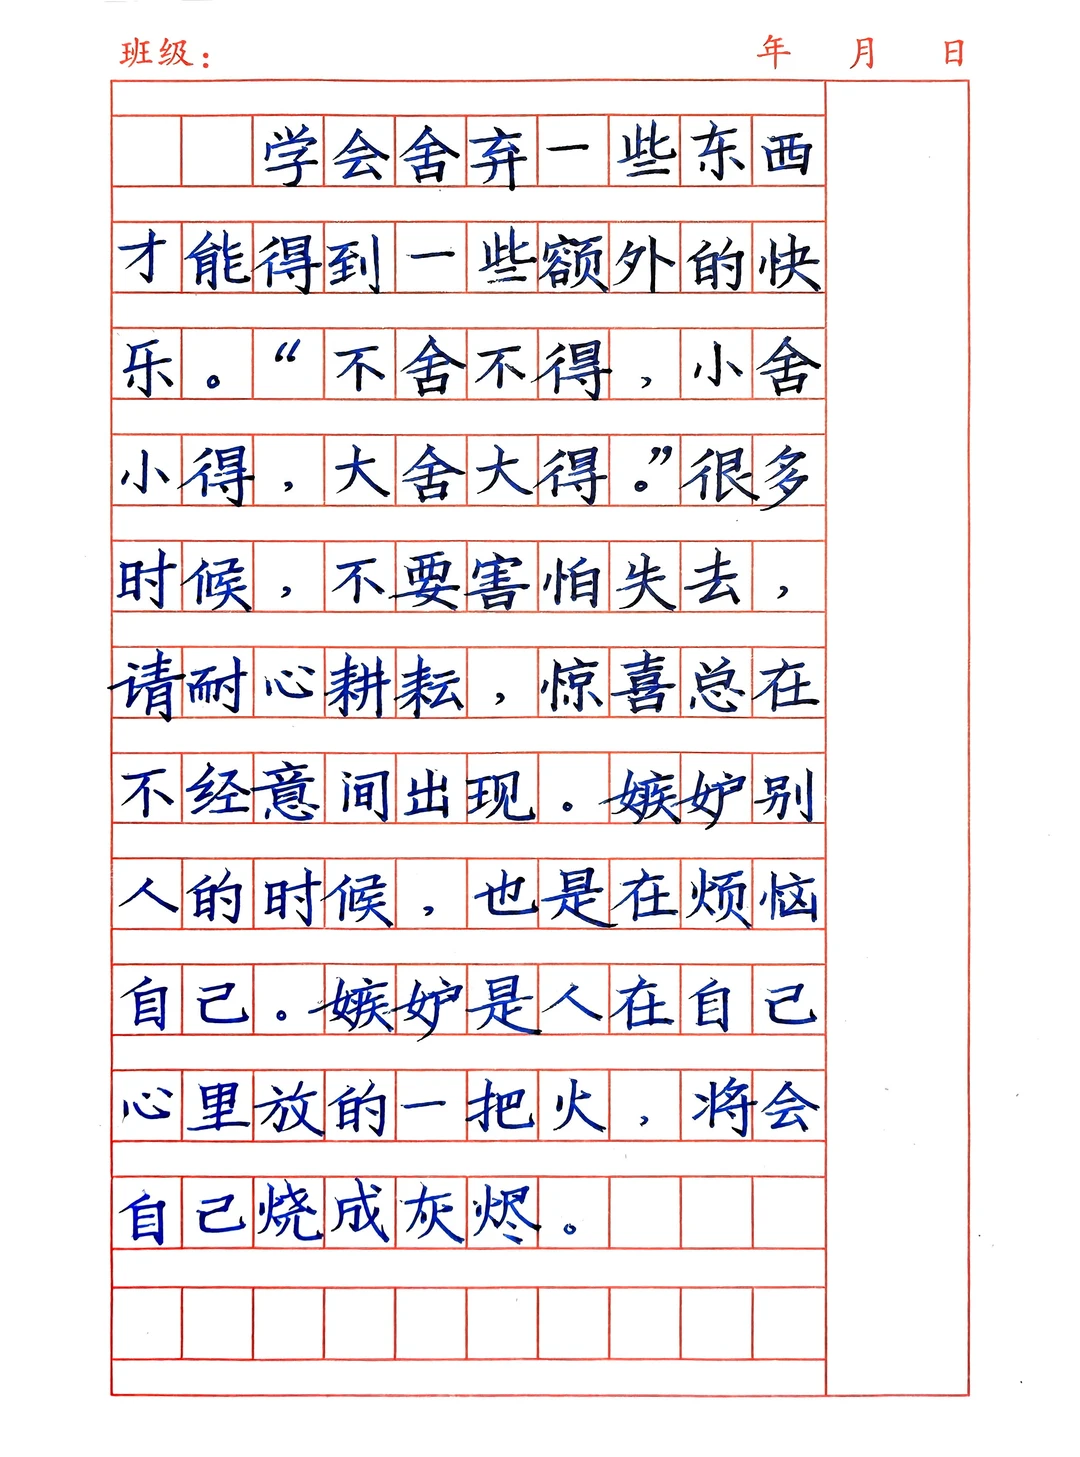 班级： 年 月 日
学会舍弃一些东西
才能得到一些额外的快
乐。“不舍不得，小舍
小得，大舍大得。”很多
时候，不要害怕失去，
请耐心耕耘，惊喜总在
不经意间出现。嫉妒别
人的时候，也是在烦恼
自己。嫉妒是人在自己
心里放的一把火，将会
自己烧成灰烬。